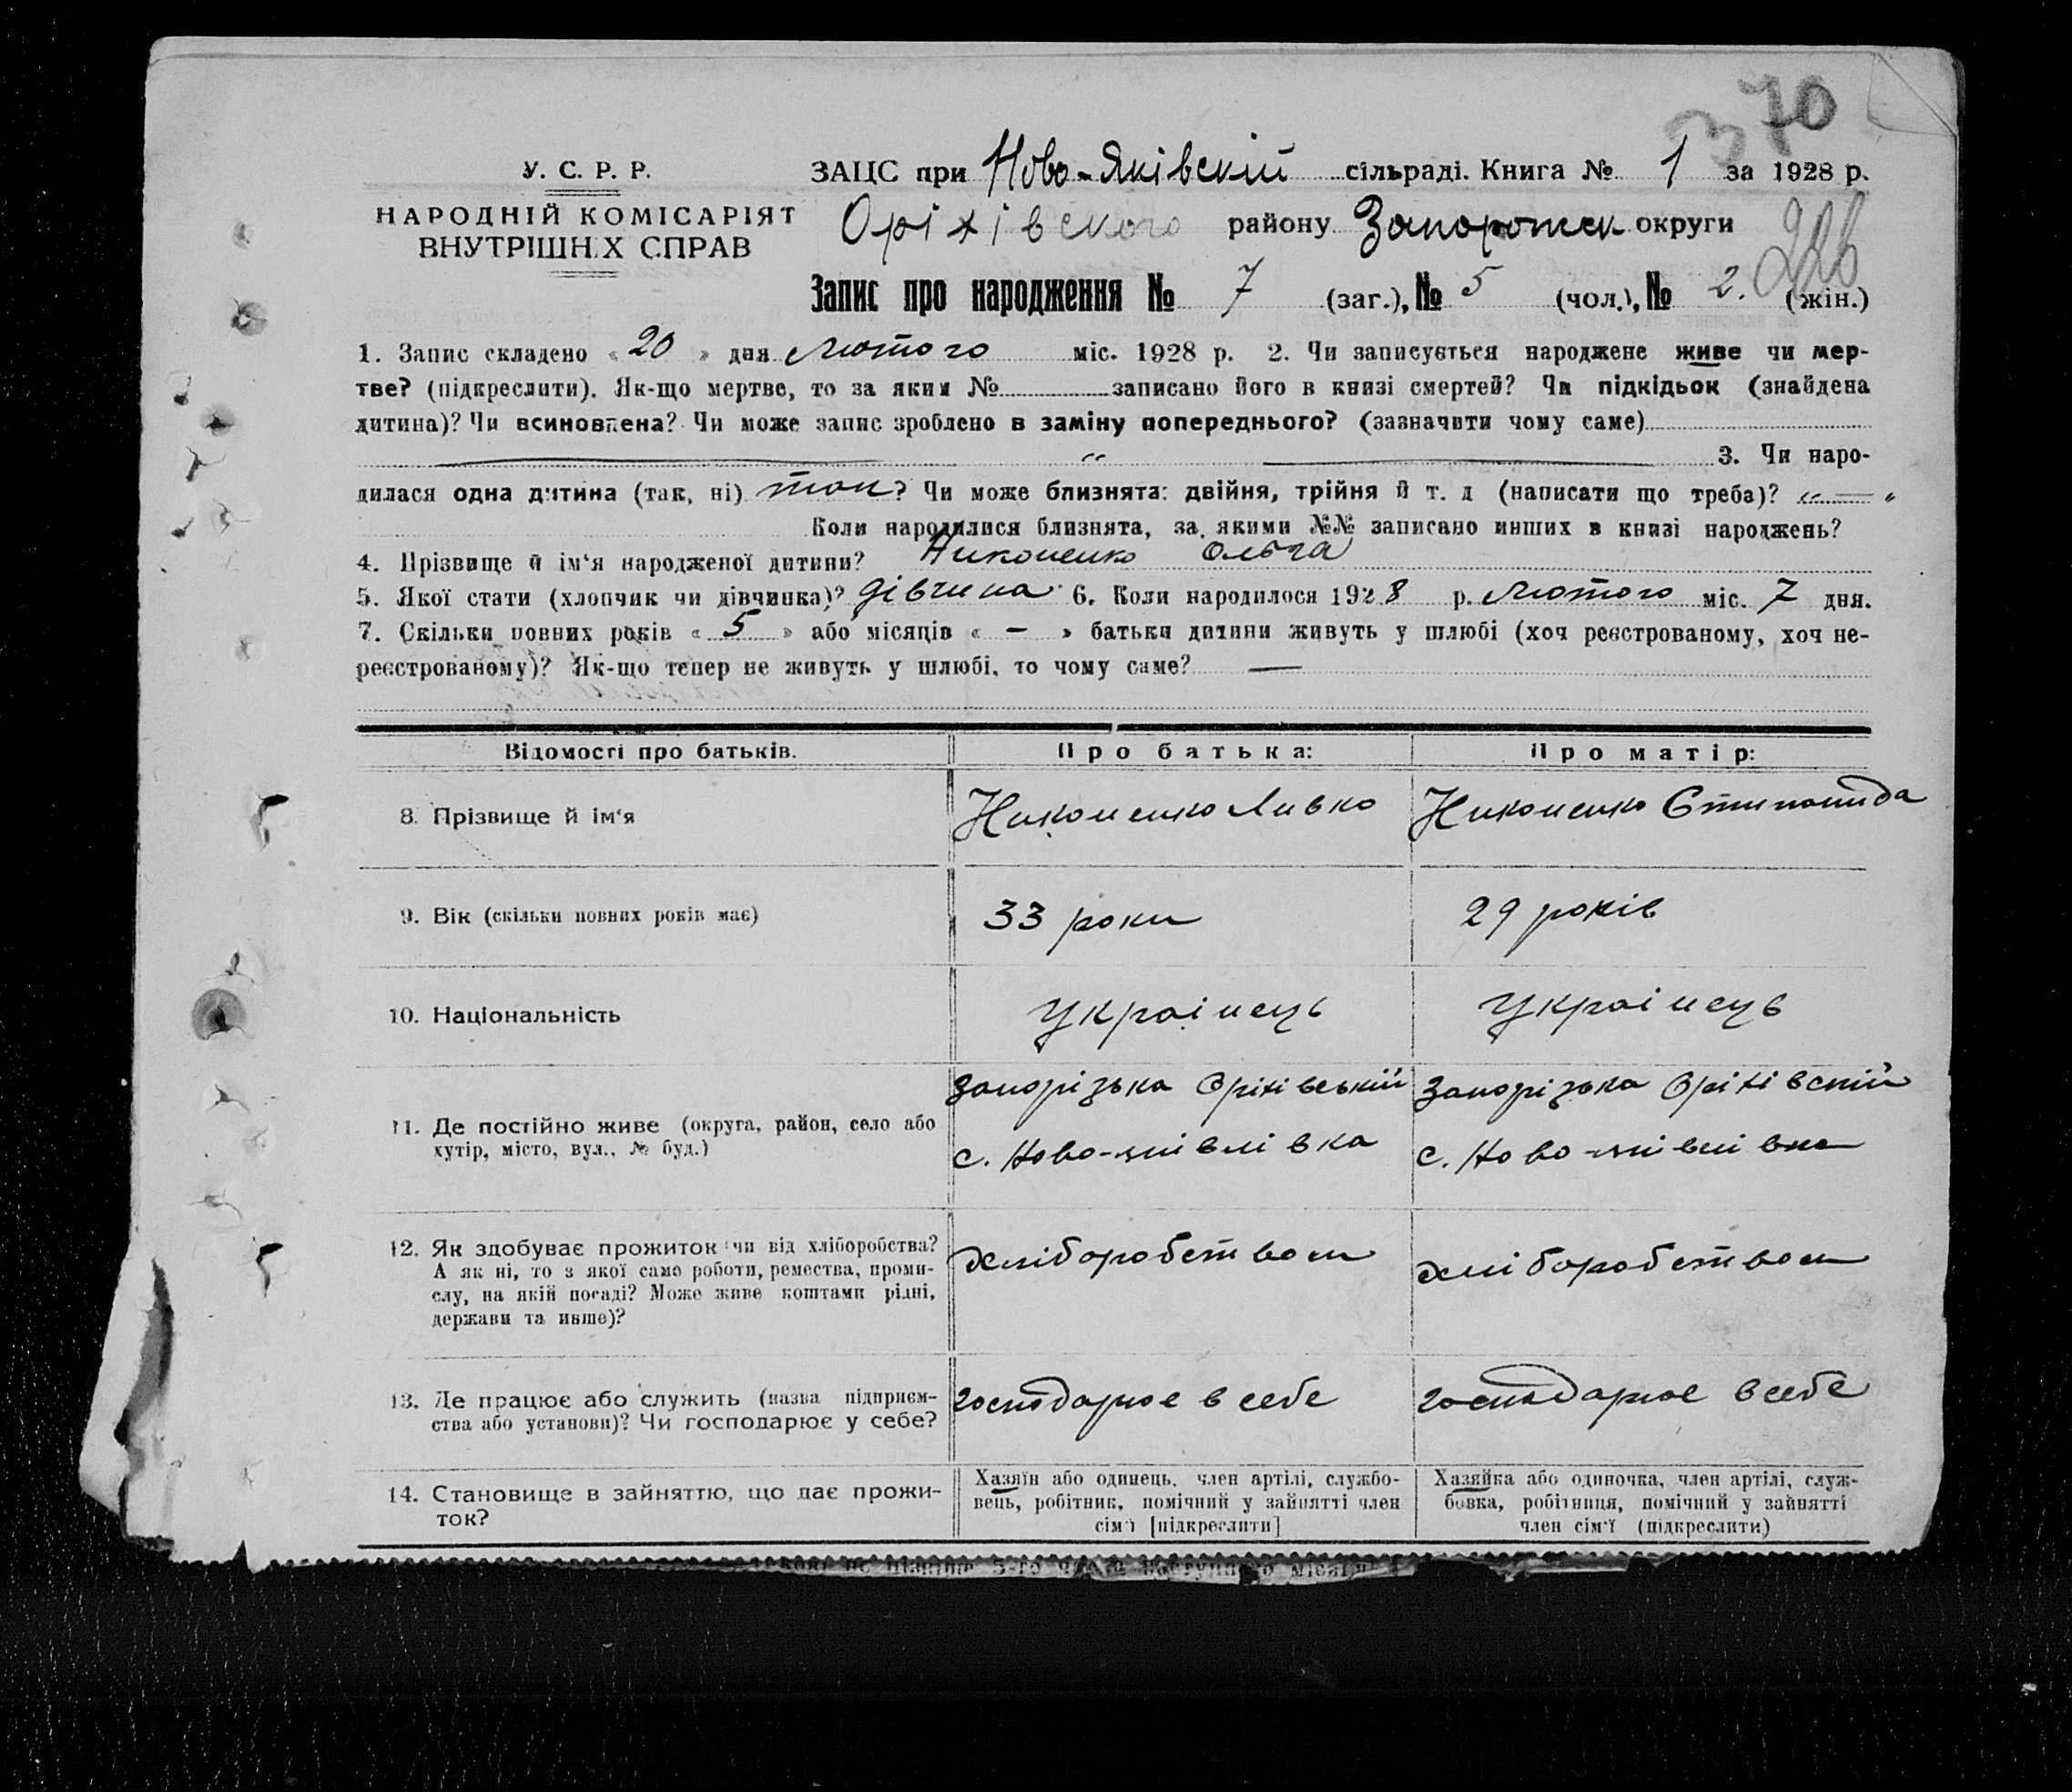 370
У. С. Р. Р.
ЗАЦС при Ново-Яківскій сільраді. Книга № 1 за 1928 р.
НАРОДНІЙ КОМІСАРІЯТ
ВНУТРІШНІХ СПРАВ
Оріхівского району Запорожск округи
226
Запис про народження № 7 (заг.), № 5 (чол.), № 2. (жін.)
1. Запис складено « 20 » дня Лютого міс. 1928 р. 2. Чи записується народжене живе чи мер-
тве? (підкреслити). Як-що мертве, то за яким № записано його в книзі смертей? Чи підкідьок (знайдена
дитина)? Чи всиновлена? Чи може запис зроблено в заміну попереднього? (зазначити чому саме)
„ 3. Чи наро-
дилася одна дитина (так, ні) так? Чи може близнята: двійня, трійня й т. д (написати що треба)? „ — „
Коли народилися близнята, за якими №№ записано инших в книзі народжень?
4. Прізвище й ім‘я народженої дитини? Никоненко Ольга
5. Якої стати (хлопчик чи дівчинка)? дівчина 6. Коли народилося 1928 р. Лютого міс. 7 дня.
7. Скільки повних років « 5 » або місяців « – » батьки дитини живуть у шлюбі (хоч реєстрованому, хоч не-
реєстрованому)? Як-що тепер не живуть у шлюбі, то чому саме? —
Відомості про батьків. Про батька: Про матір:
8. Прізвище й ім‘я Никоненко Никоненко
9. Вік (скільки повних років має) 33 роки 29 років
10. Національність Украінець Украінець
11. Де постійно живе (округа, район, село або
хутір, місто, вул., № буд.)
Запорізька Оріхівський Запорізька Оріхівский
с. Ново-яківлівка с. Ново-яківлівка
12. Як здобуває прожиток чи від хліборобства?
А як ні, то з якої само роботи, ремества, проми-
слу, на якій посаді? Може живе коштами рідні,
держави та инше)?
хліборобством хліборобством
13. Де працює або служить (назва підприєм-
ства або установи)? Чи господарює у себе?
господарює в себе господарює в себе
14. Становище в зайняттю, що дає прожи-
ток?
Хазяїн або одинець, член артілі, службо-
вець, робітник, помічний у зайнятті член
сім‘ї [підкреслити]
Хазяйка або одиночка, член артілі, служ-
бовка, робітниця, помічний у зайнятті
член сім‘ї (підкреслити)